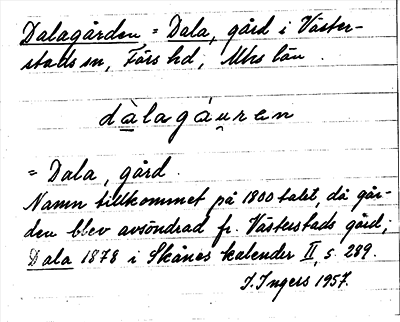 Dalagården = Dala, gård i Väster-
stads sn, Färs hd, Mhs län.
dàlagáuren
= Dala, gård.
Namn tillkommet på 1800 talet, då går-
den blev avsöndrad fr. Västerstads gård;
Dala 1878 i Skånes kalender II, s. 289.
I. Ingers 1957.